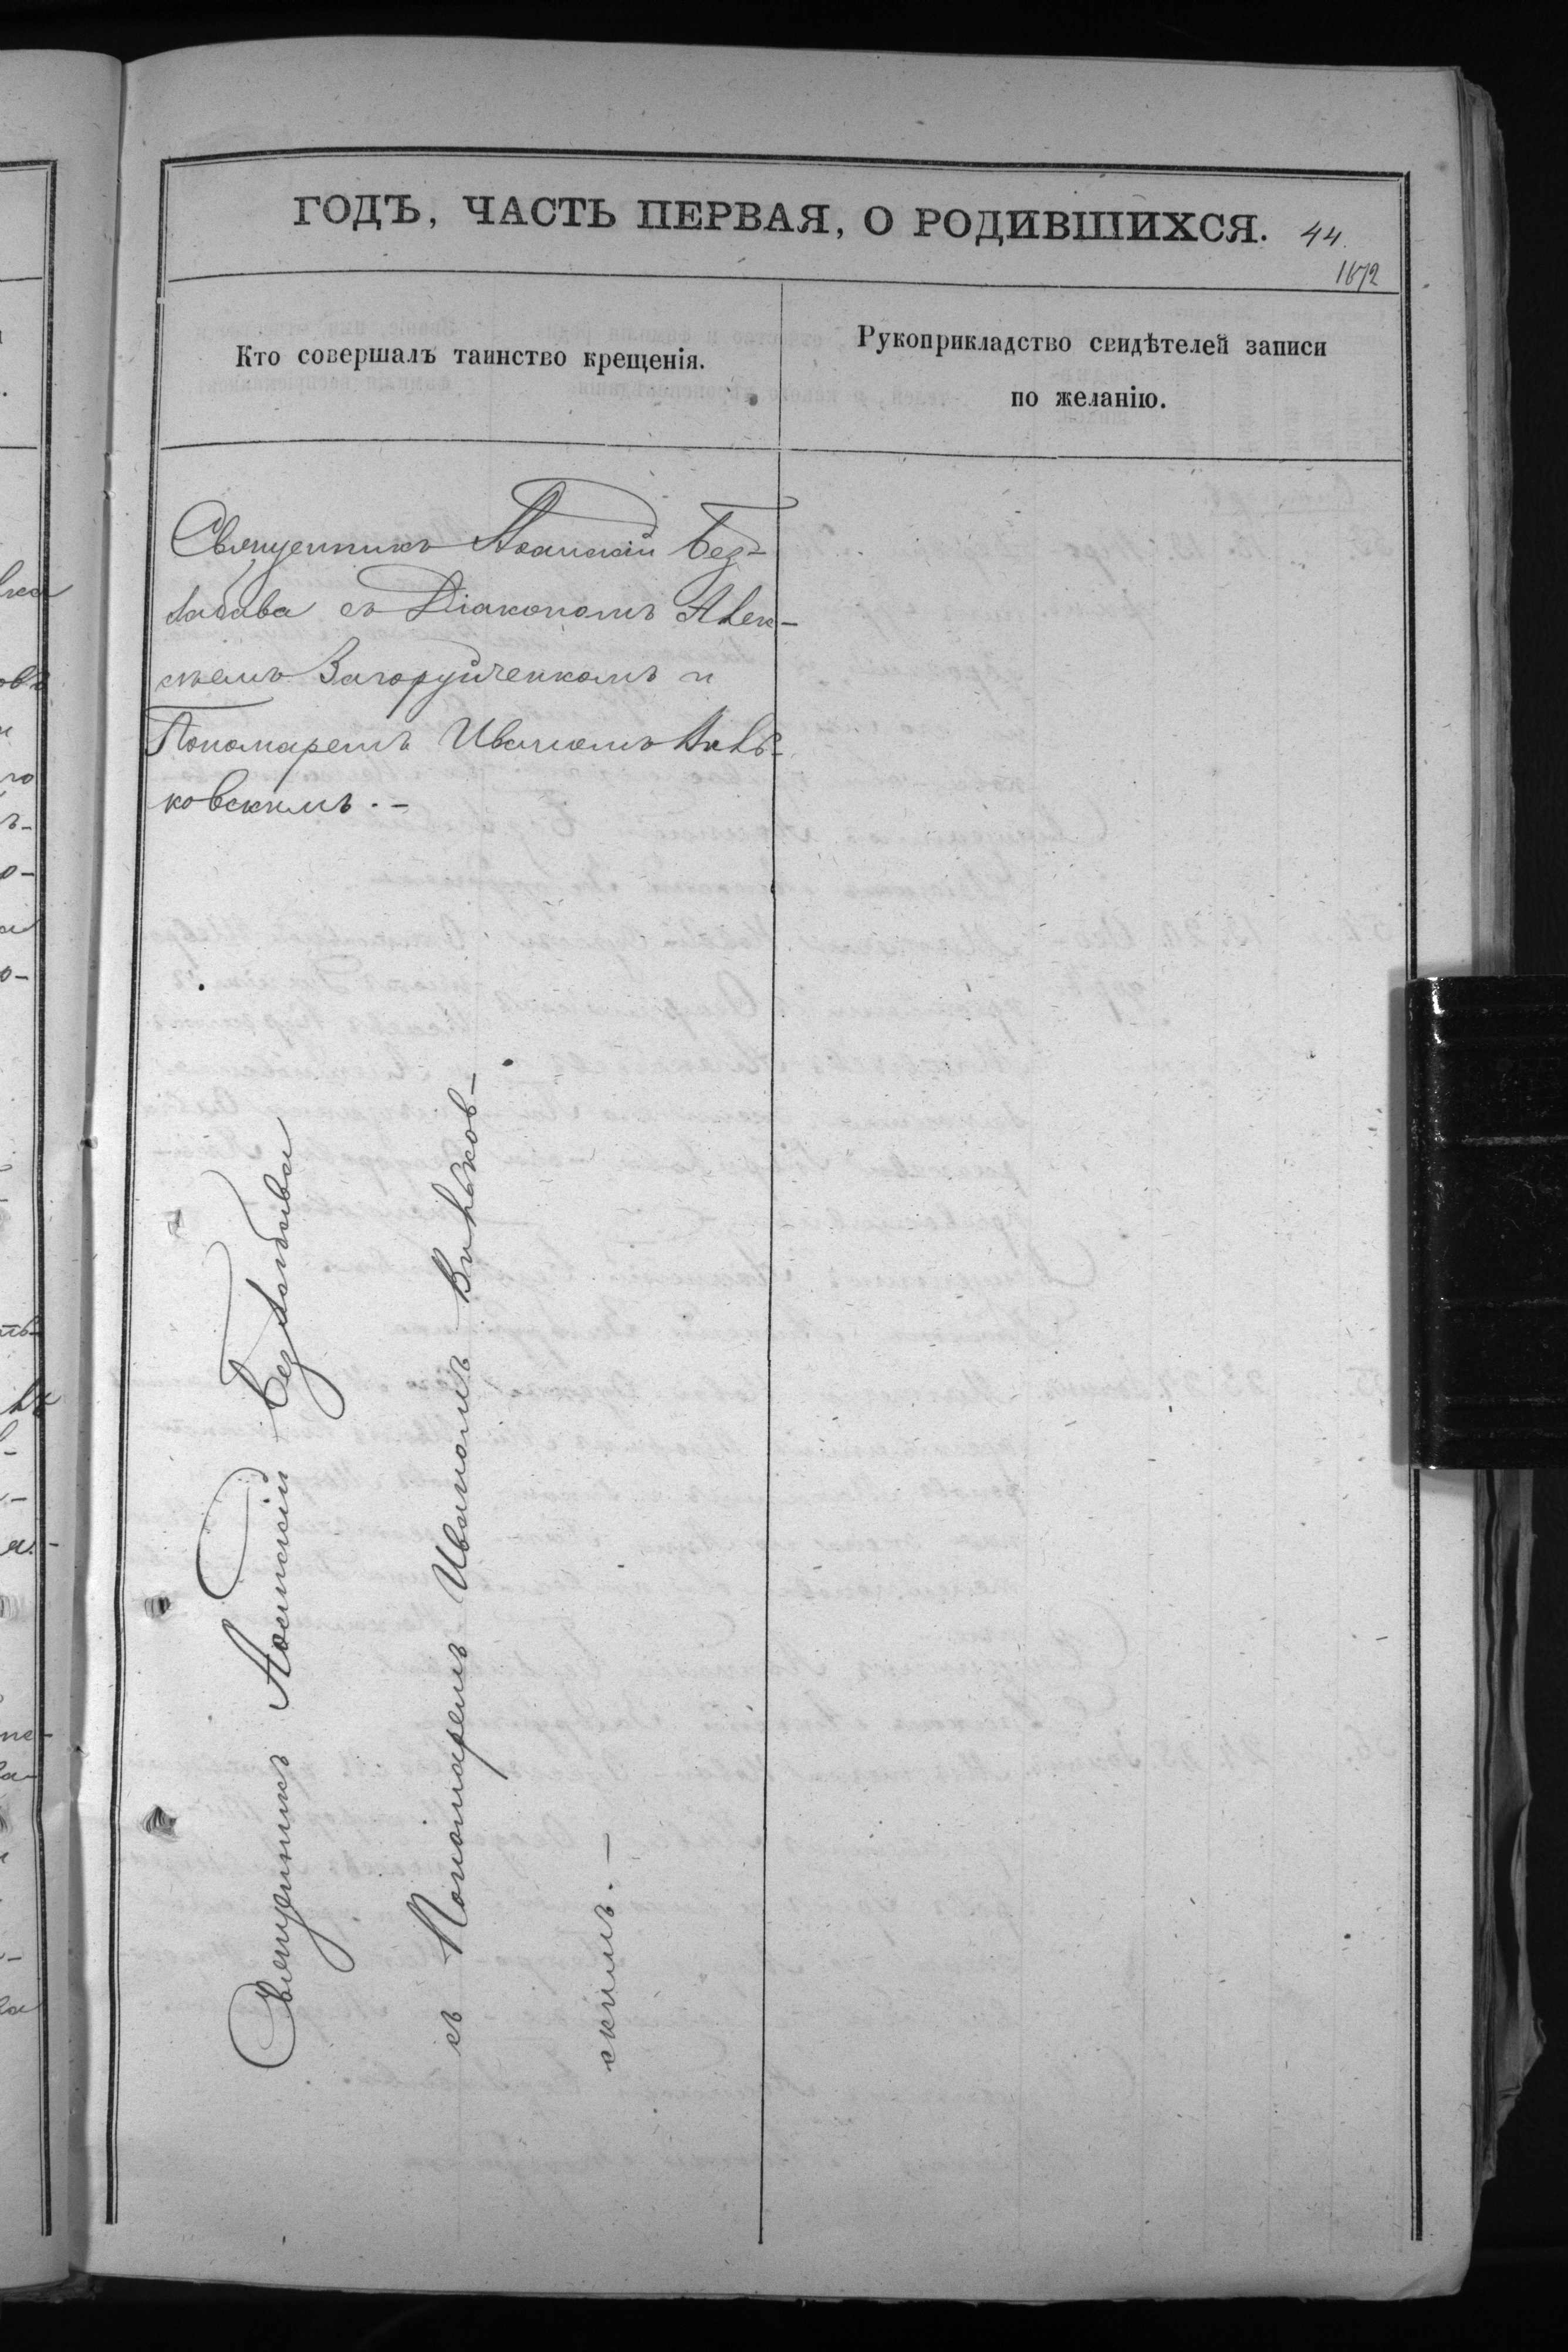 ГОДЪ, ЧАСТЬ ПЕРВАЯ, О РОДИВШИХСЯ. 44.
1672
Кто совершалъ таинство крещенія.
Рукоприкладство свидѣтелей записи
по желанію.
Священникъ Іоанникій Без-
лабава съ Діакономъ Алек-
сѣемъ Загоруйченкомъ и
Пономаремъ Иваномъ Виль-
ковскимъ. -
Священникъ Іоанникій Безлабава
съ Пономаремъ Иваномъ Вильков-
скимъ. -